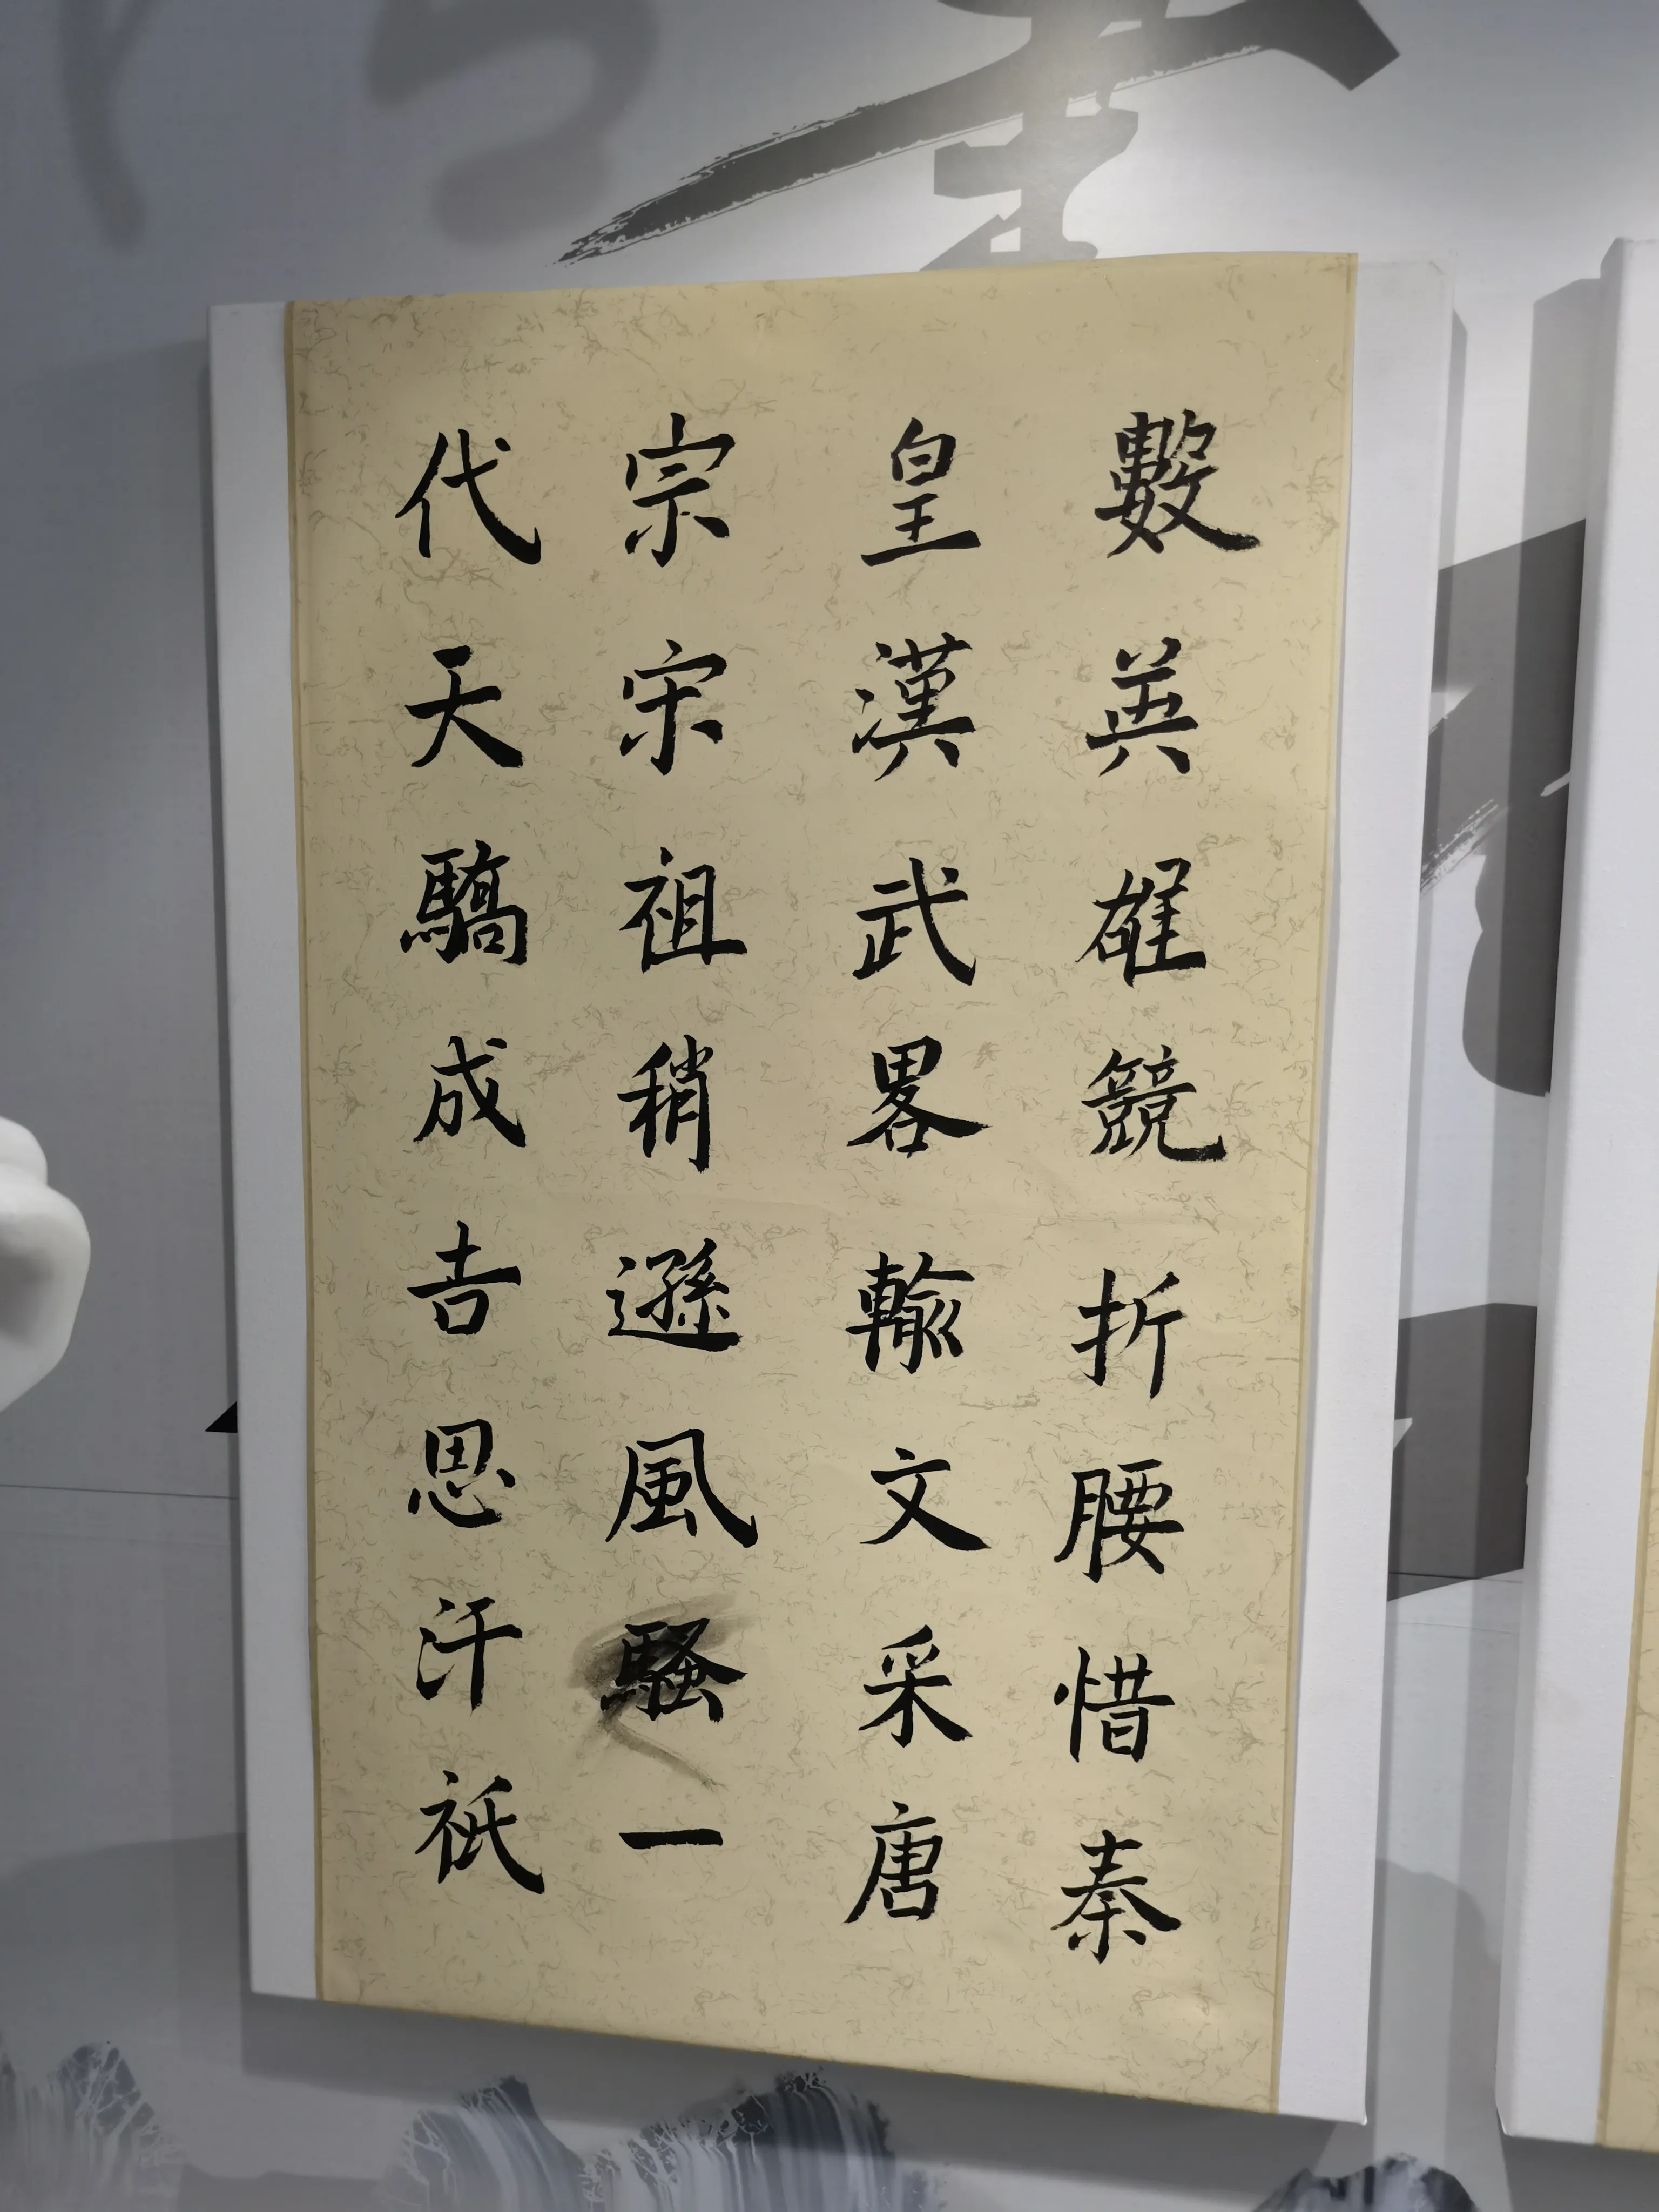 數英雄競折腰惜秦
皇漢武畧輸文采唐
宗宋祖稍遜風騷一
代天驕成吉思汗祇